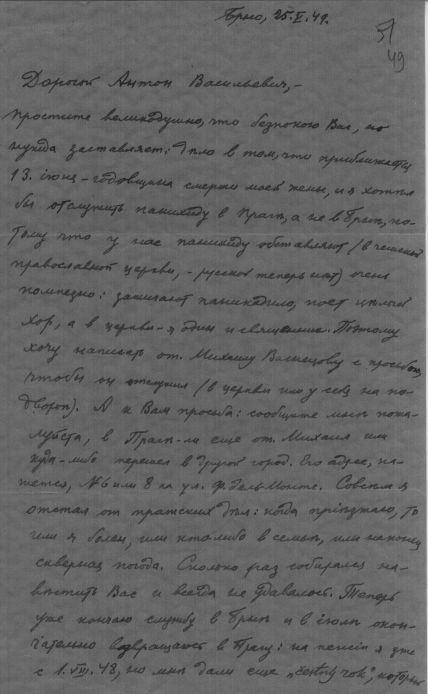 Брно, 25.V.49.
51
49
Дорогой Антон Васильевич,-
простите великодушно, что безпокою Вас, но
нужда заставляет: дѣло в том, что приближается
13. iюня - годовщина смерти моей жены, и я хотѣл
бы отслужить панихиду в Прагѣ, а не в Брнѣ, по-
тому что у нас панихиду обставляют (в чешской
православной церкви, - русской теперь нѣт) очень
помпезно: зажигают паникадило, поет цѣлый
хор, а в церкви - я один и священник. Поэтому
хочу написать от. Михаилу Васнецову с просьбой,
чтобы он отслужил (в церкви или у себя на по-
дворьѣ). А к Вам просьба: сообщите мнѣ пожа-
луйста, в Прагѣ-ли еще от. Михаил или
куда-либо переѣхал в другой город. Его адрес, ка-
жется, № 6 или 8 на ул. Ф. дель Монте. Совсѣм я
отстал от пражских дѣл: когда прiѣзжаю, то
или я болен, или кто либо в семьѣ, или наконец
скверная погода. Сколько раз собирался на-
вѣстить Вас и всегда не удавалось. Теперь
уже кончаю службу в Брнѣ и в iюлѣ окон-
чательно возвращаюсь в Прагу: на пенсiи я уже
с 1.VII.48, но мнѣ дали еще „čestný rok", который